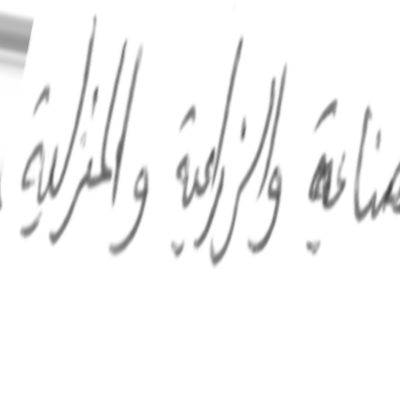 صناعية والزراعية والمنزلية